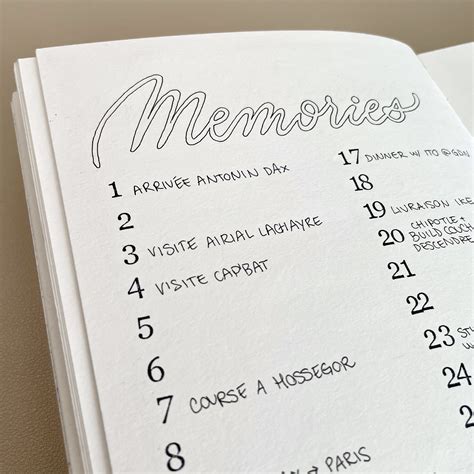 Memories
1 ARRIVÉE ANTONIN DAX
2
3 VISITE AIRIAL LACHAYRE
4 VISITE CAP'BAT
5
6
7 COURSE A HOSSEGOR
8
PARIS
17 DINNER W/ ITO
18
19 LIVRAISON IKE
20 CHIPOTLE +
BUILD COUCH
DESCENDRE
21
22
23
24